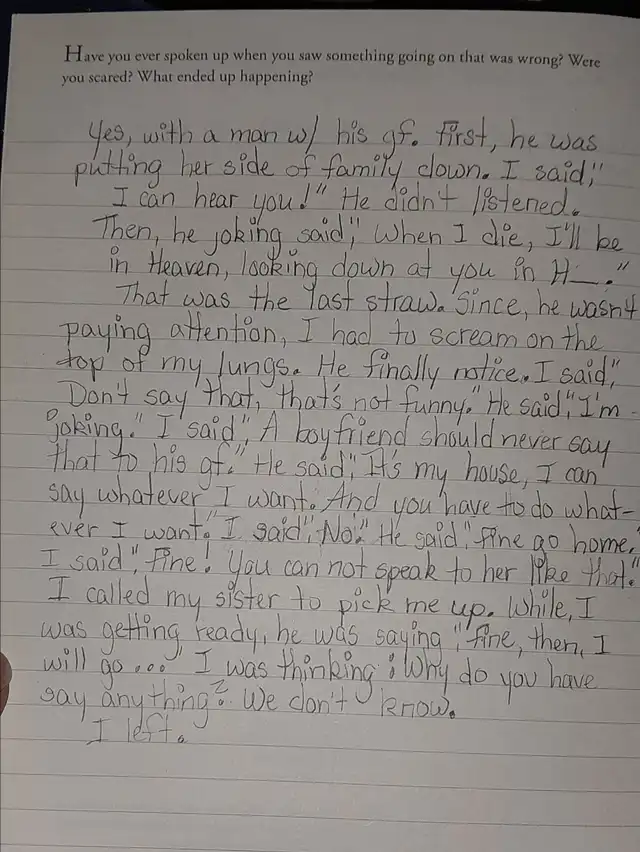 Have you ever spoken up when you saw something going on that was wrong? Were
you scared? What ended up happening?
Yes, with a man w/ his gf. First, he was
putting her side of family down. I said,"
I can hear you!" He didn't listened.
Then, he joking said," When I die, I'll be
in Heaven, looking down at you in H__."
That was the last straw. Since, he wasn't
paying attention, I had to scream on the
top of my lungs. He finally notice. I said,"
Don't say that, that's not funny." He said," I'm
joking." I said", A boyfriend should never say
that to his gf." He said," It's my house, I can
say whatever I want. And you have to do what-
ever I want." I said", No." He said," Fine go home."
I said", Fine! You can not speak to her like that."
I called my sister to pick me up. While, I
was getting ready, he was saying," Fine, then, I
will go..." I was thinking: Why do you have
say anything? We don't know.
I left.